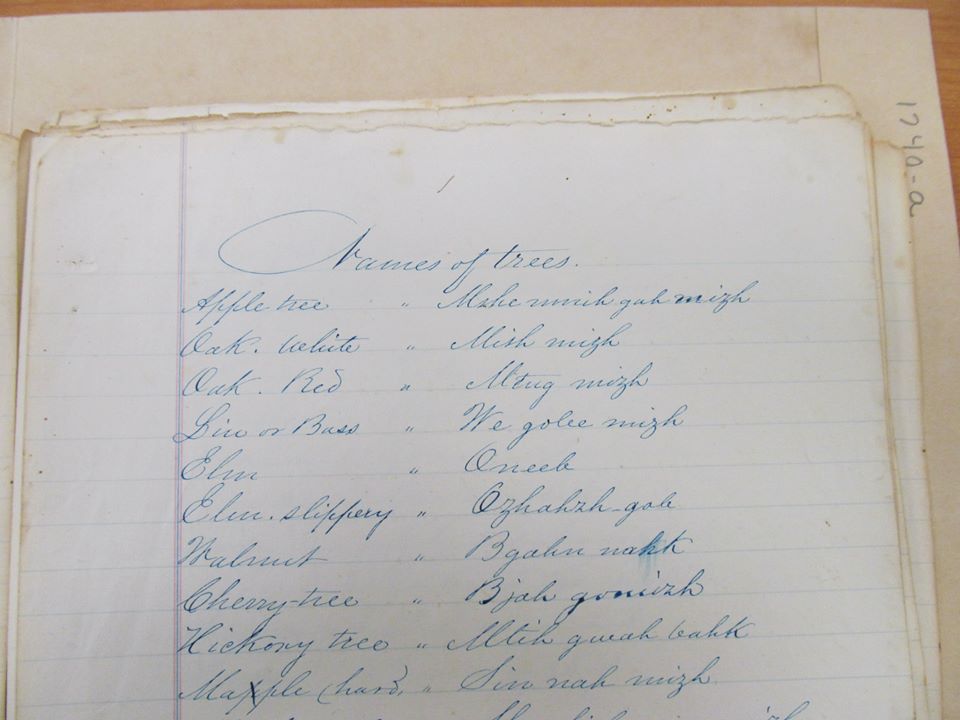 1740-a
Names of trees.
Apple tree " Mzhe mnih gah mizh
Oak. White " Mish mizh
Oak. Red " M'tug mizh
Lin or Bass " We gobee mizh
Elm " Oneeb
Elm. slippery " Ozhahzh-gob
Walnut " Bgahn nahk
Cherry-tree " Bjah gomizh
Hickory tree " Mtih gwah bahk
Mapple (hard, " Sin nah mizh